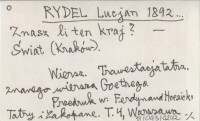 RYDEL Lucjan 1892...
Znasz li ten kraj? —
Świat (Kraków).
Wiersz. Trawestacja tatrz.
znanego wiersza Goethego
Przedruk w: Ferdynand Hoesick:
Tatry i Zakopane. T. 4, Warszawa